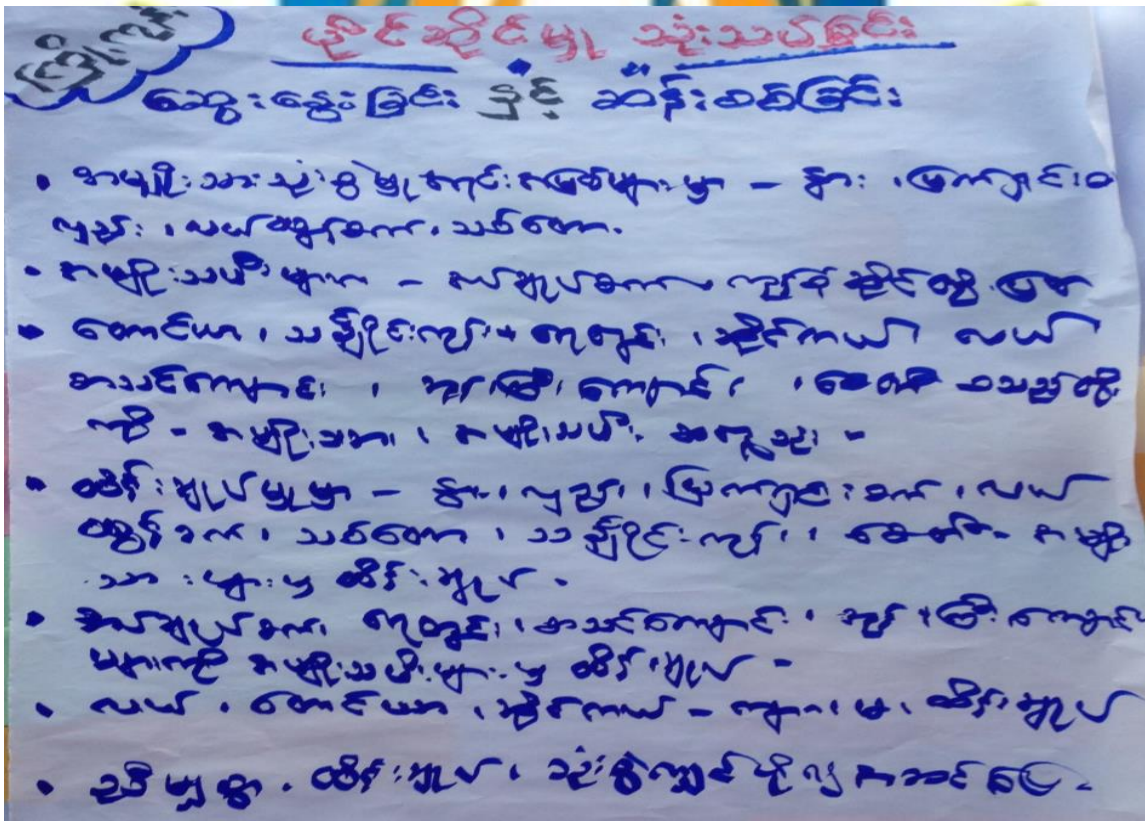 ပိုင်ဆိုင်မှု သုံးသပ်ခြင်း
ဆွေးနွေးခြင်း နှင့် ဆန်းစစ်ခြင်း
• အမျိုးသားသုံးစွဲမှု အရင်းအမြစ်များမှာ - နွား ၊ မြက်ရှင်းစ
လှည်း ၊ လယ်ထွန်စက် ၊ သစ်တော ၊
• အမျိုးသမီးများက - စက်ချုပ်စက်၊
• တောင်ယာ ၊ သင်္ချိုင်းကုန်း ရေတွင်း ၊ ဆိုင်ကယ်၊ လယ်
စာသင်ကျောင်း ၊ ဘုန်းကြီးကျောင်း ၊ စေတီ စသည်တို့
ကို - အမျိုးသား ၊ အမျိုးသမီး အတူသုံး -
• ထိန်းချုပ်မှုမှာ - နွား ၊ လှည်း ၊ မြက်ရှင်းစက် ၊ လယ်
ထွန်စက် ၊ သစ်တော ၊ သင်္ချိုင်းကုန်း ၊ စေတီ - အမျိုး
သားများမှ ထိန်းချုပ် -
• စက်ချုပ်စက်၊ ရေတွင်း ၊ စာသင်ကျောင်း ၊ ဘုန်းကြီးကျောင်း
များကို အမျိုးသမီးများမှ ထိန်းချုပ် -
• လယ် ၊ တောင်ယာ ၊ ဆိုင်ကယ် - ကျား၊ မ၊ ထိန်းချုပ်
• ညီမျှစွာ ၊ ထိန်းချုပ် ၊ သုံးစွဲကျင်